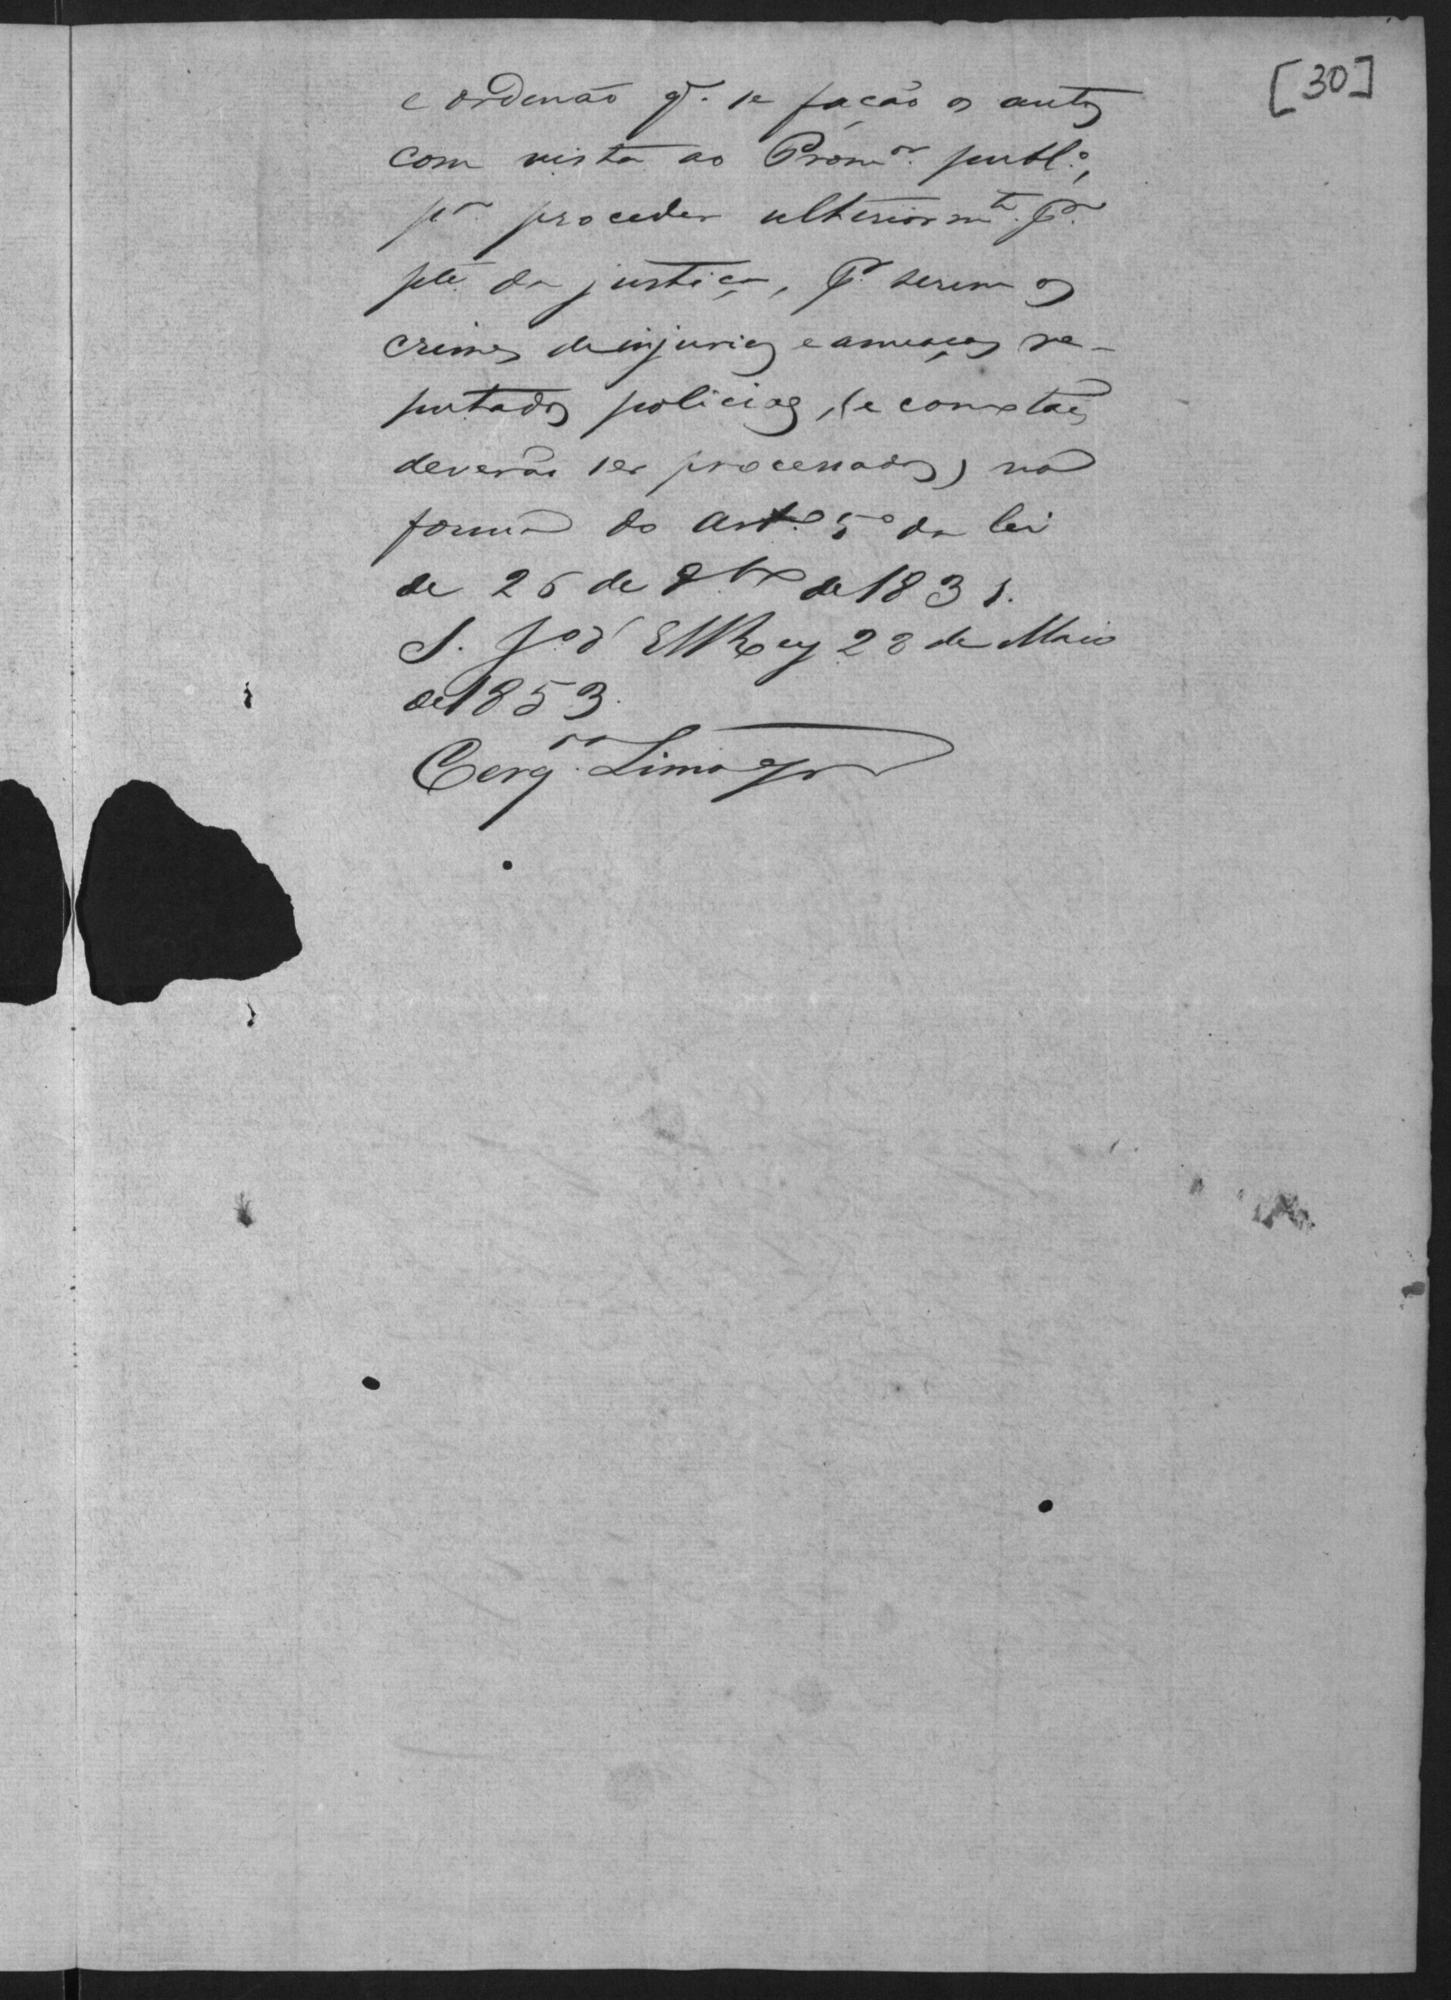 [30]
e ordenão q̃. se facão os autos
com vista ao Promor. publo.,
pa. proceder ulteriormte. pr.
pte. da justiça, pr. serem os
crimes de injurias e ameaças re-
putados policiaes, (e como taes
deverão ser processados) na
forma do arto. 5º da lei
de 26 de 8bro de 1831.
S. Jo d' ElRey 28 de Maio
de 1853.
Cerqra. Lima